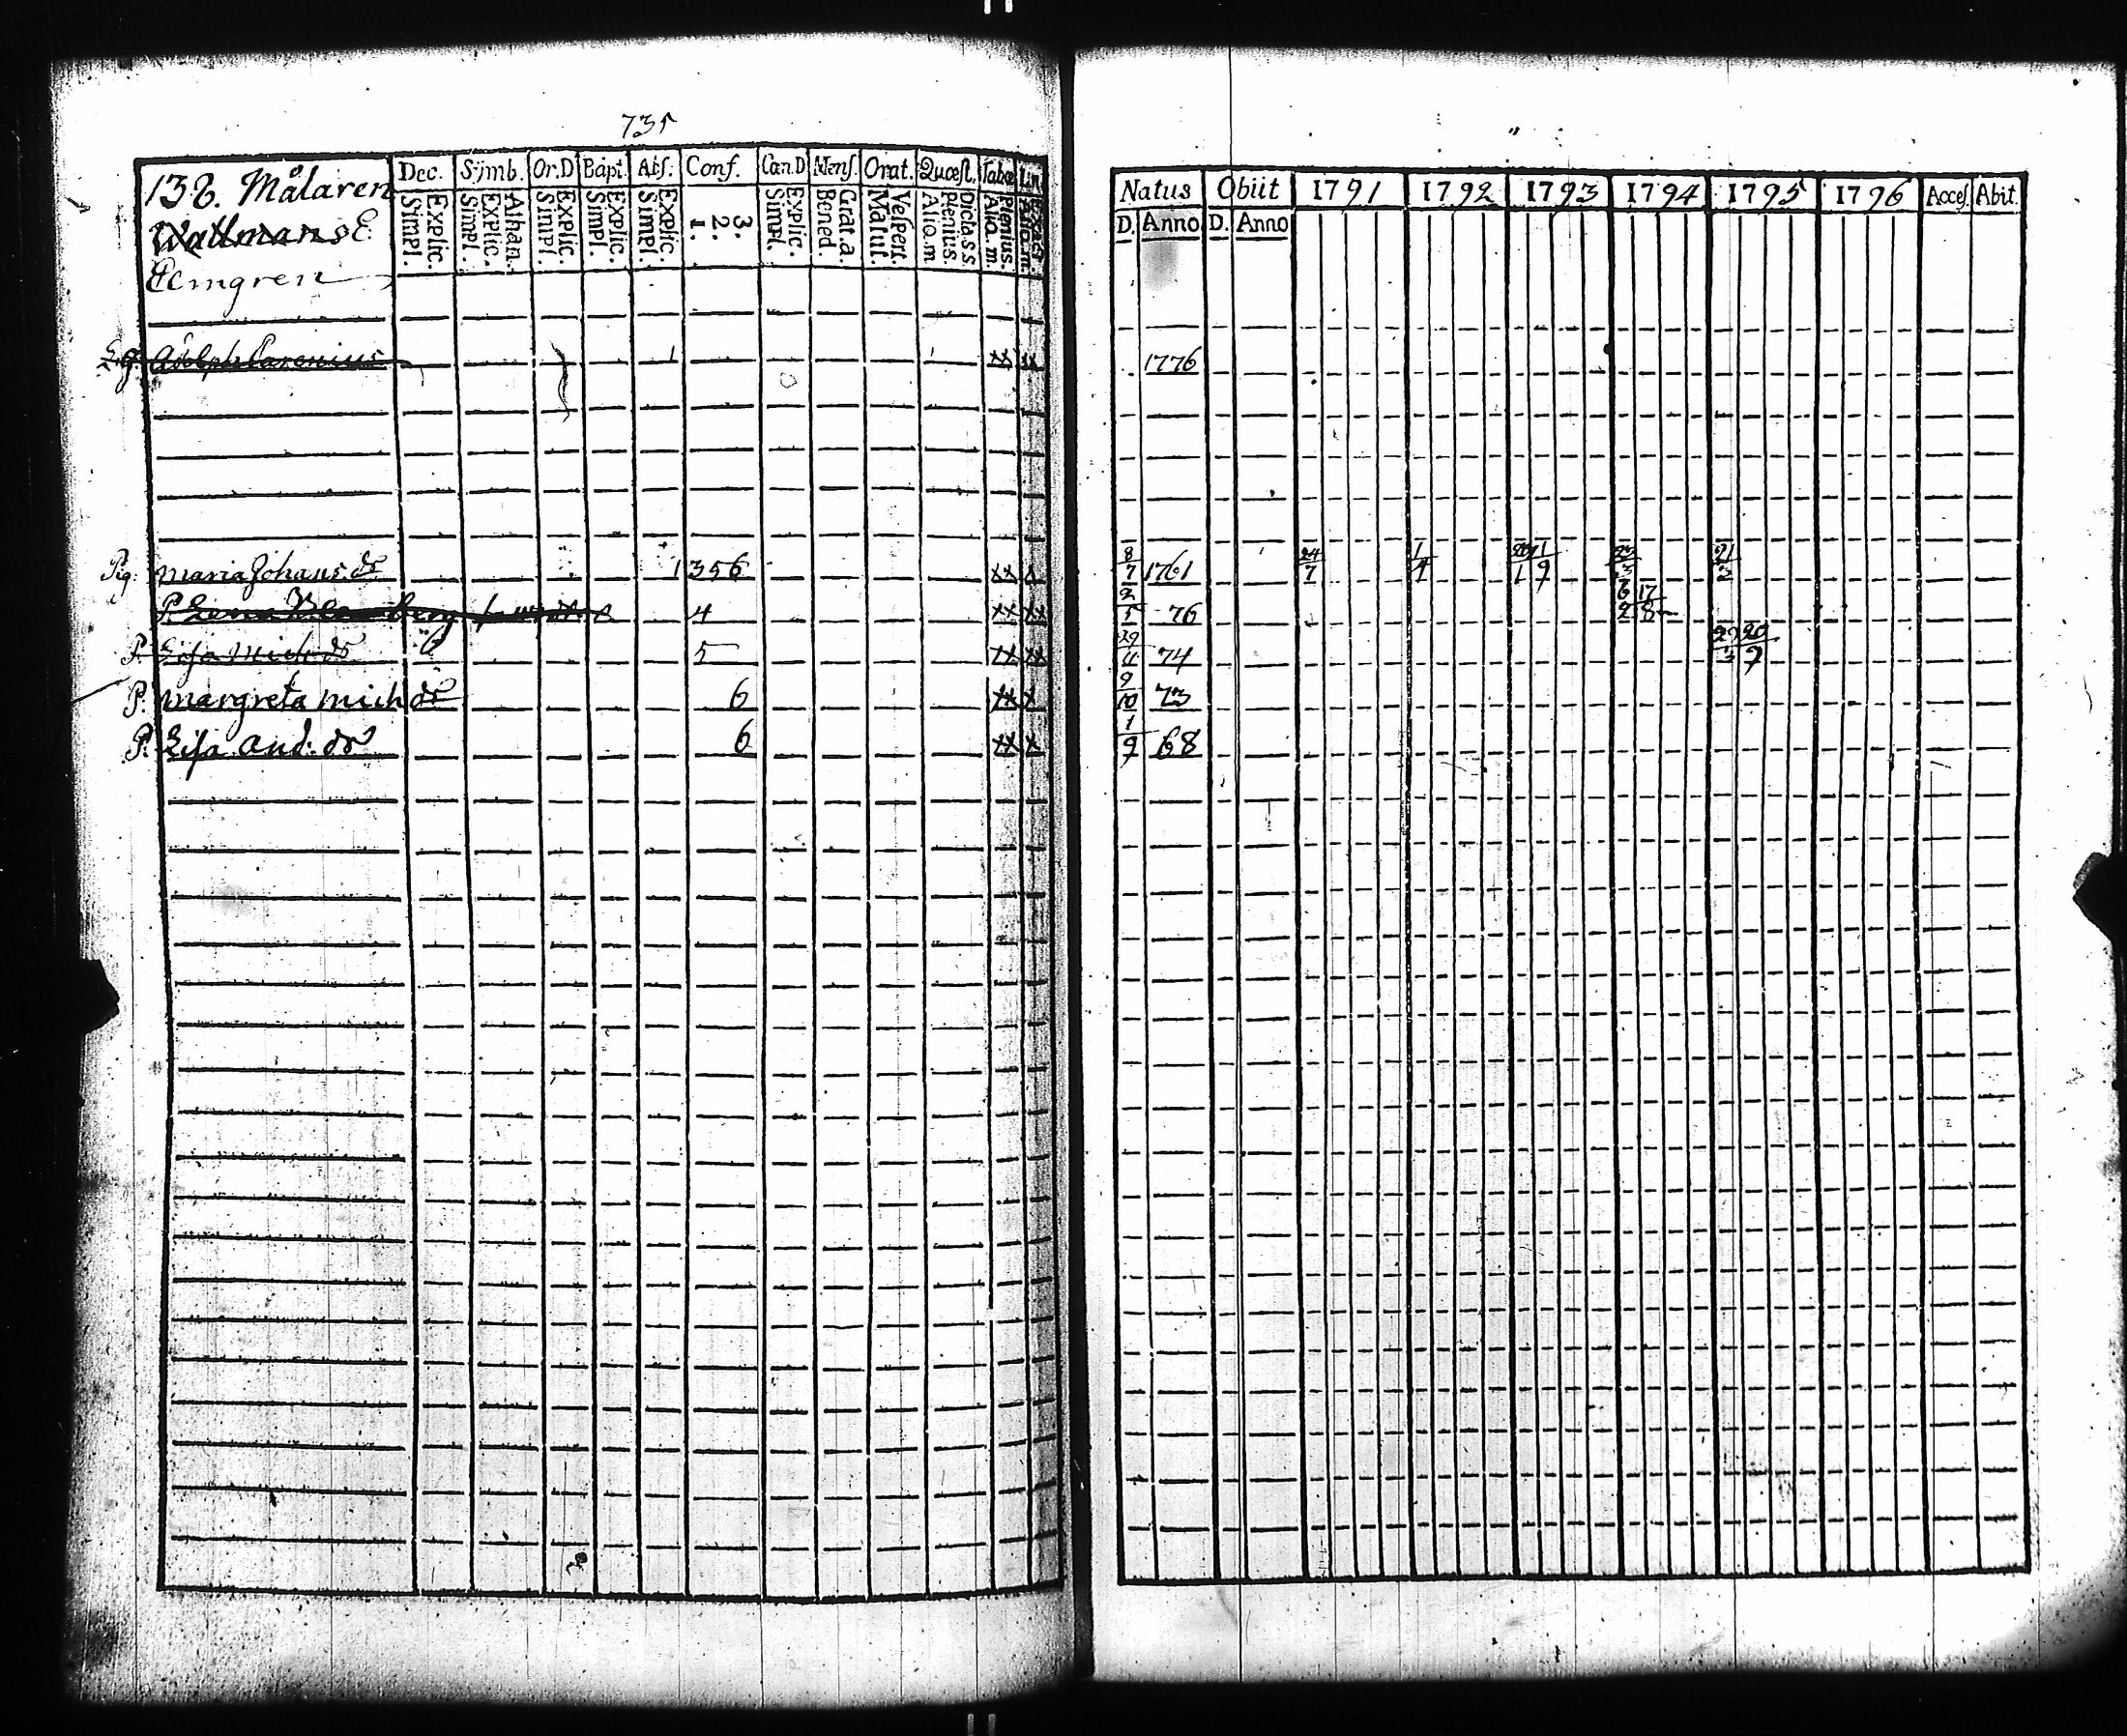 735
138. Målaren Dec. Symb. Or.D Bapt. Abs. Conf. Can.D Mens. Orat. Quæst. Tabæ Lin.
Wallmans E
Elmgren
Simpl. Explic. Simpl. Explic. Athan. Simpl. Explic. Simpl. Explic. Simpl. Explic. 1. 2. 3. Simpl. Explic. Bened. Grat.a. Matut. Vespert. Alio.m. Plenius. Dicta.s.s. Alio.m. Plenius.
Adolph Carenius xx xx
Pig. Maria Johans dr 1 356 xx x
P. Lena berg 4 xx xx
P. Lisa Mich dr 5 xx xx
P. Margreta Mich dr 6 xx x
P. Lisa And: dr 6 xx x
Natus Obiit 1791 1792 1793 1794 1795 1796 Acces. Abit.
D. Anno D. Anno
1776
8/7 1761 24/7 21/3
2/5 76 6/2 17/8
29/11 74 20/9
9/10 73
1/9 68